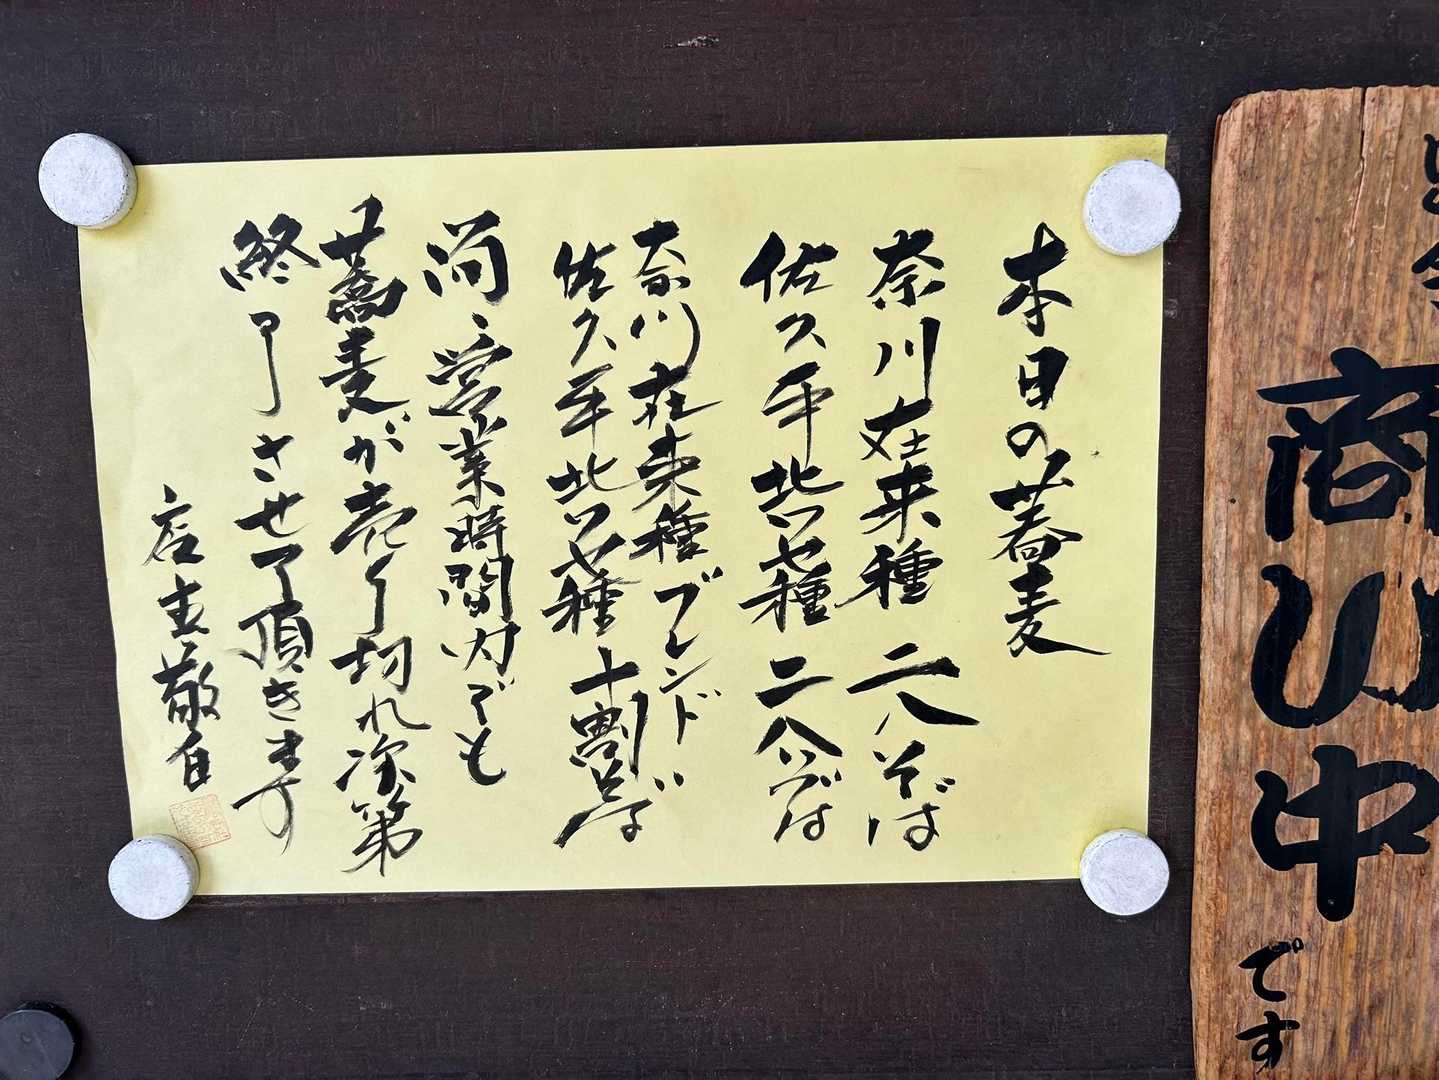 商い中
です
本日の蕎麦
奈川在来種 二八そば
佐久平北ワセ種 二八そば
奈川在来種ブレンド
佐久平北ワセ種 十割そば
尚、営業時間内でも
蕎麦が売り切れ次第
終了させて頂きます
店主敬白